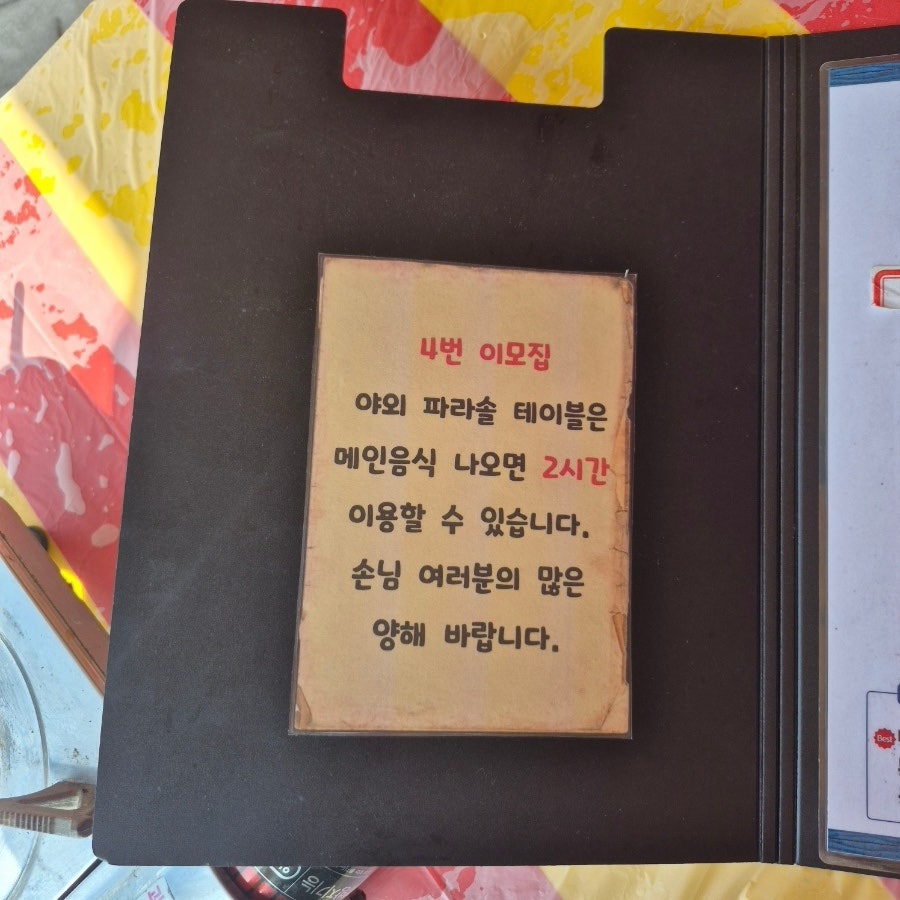 4번 이모집
야외 파라솔 테이블은
메인음식 나오면 2시간
이용할 수 있습니다.
손님 여러분의 많은
양해 바랍니다.
Best